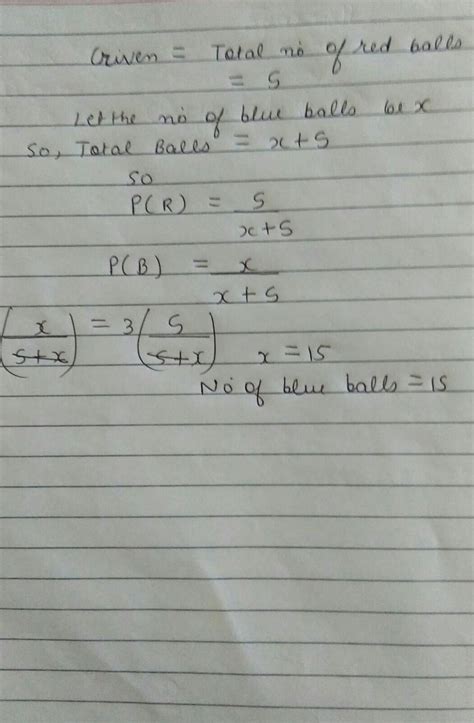 Given = Total no of red balls
= 5
Let the no of blue balls be x
So, Total Balls = x+5
so
P(R) = 5/x+5
P(B) = x/x+5
(x/5+x) = 3(5/5+x) x = 15
No of blue balls = 15